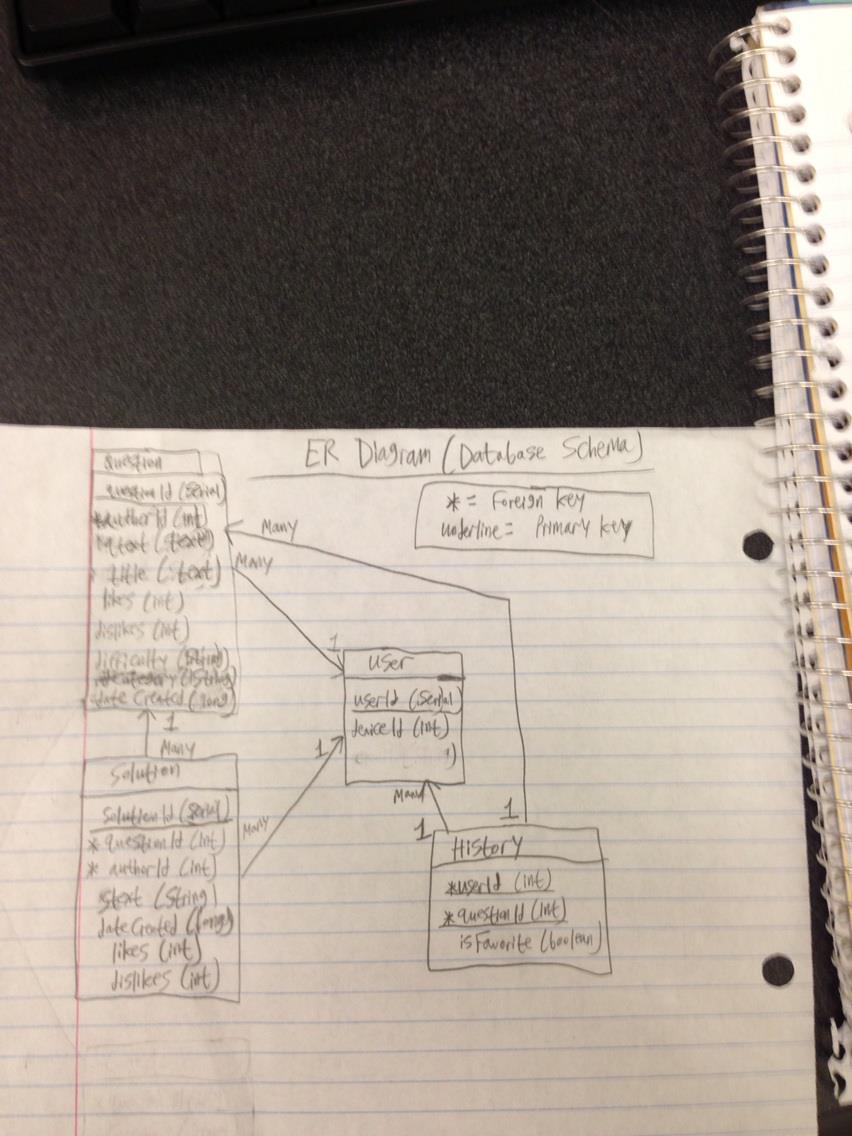 ER Diagram (Database Schema)
* = Foreign key
underline = Primary key
Question
questionId (Serial)
*authorId (int)
qtext (text)
title (text)
likes (int)
dislikes (int)
difficulty (String)
category (String)
dateCreated (long)
Many
Many
1
User
userId (Serial)
deviceId (int)
1
Many
Solution
solutionId (Serial)
* questionId (int)
* authorId (int)
stext (String)
dateCreated (long)
likes (int)
dislikes (int)
Many
1
Many
1
1
History
*userId (int)
*questionId (int)
isFavorite (boolean)